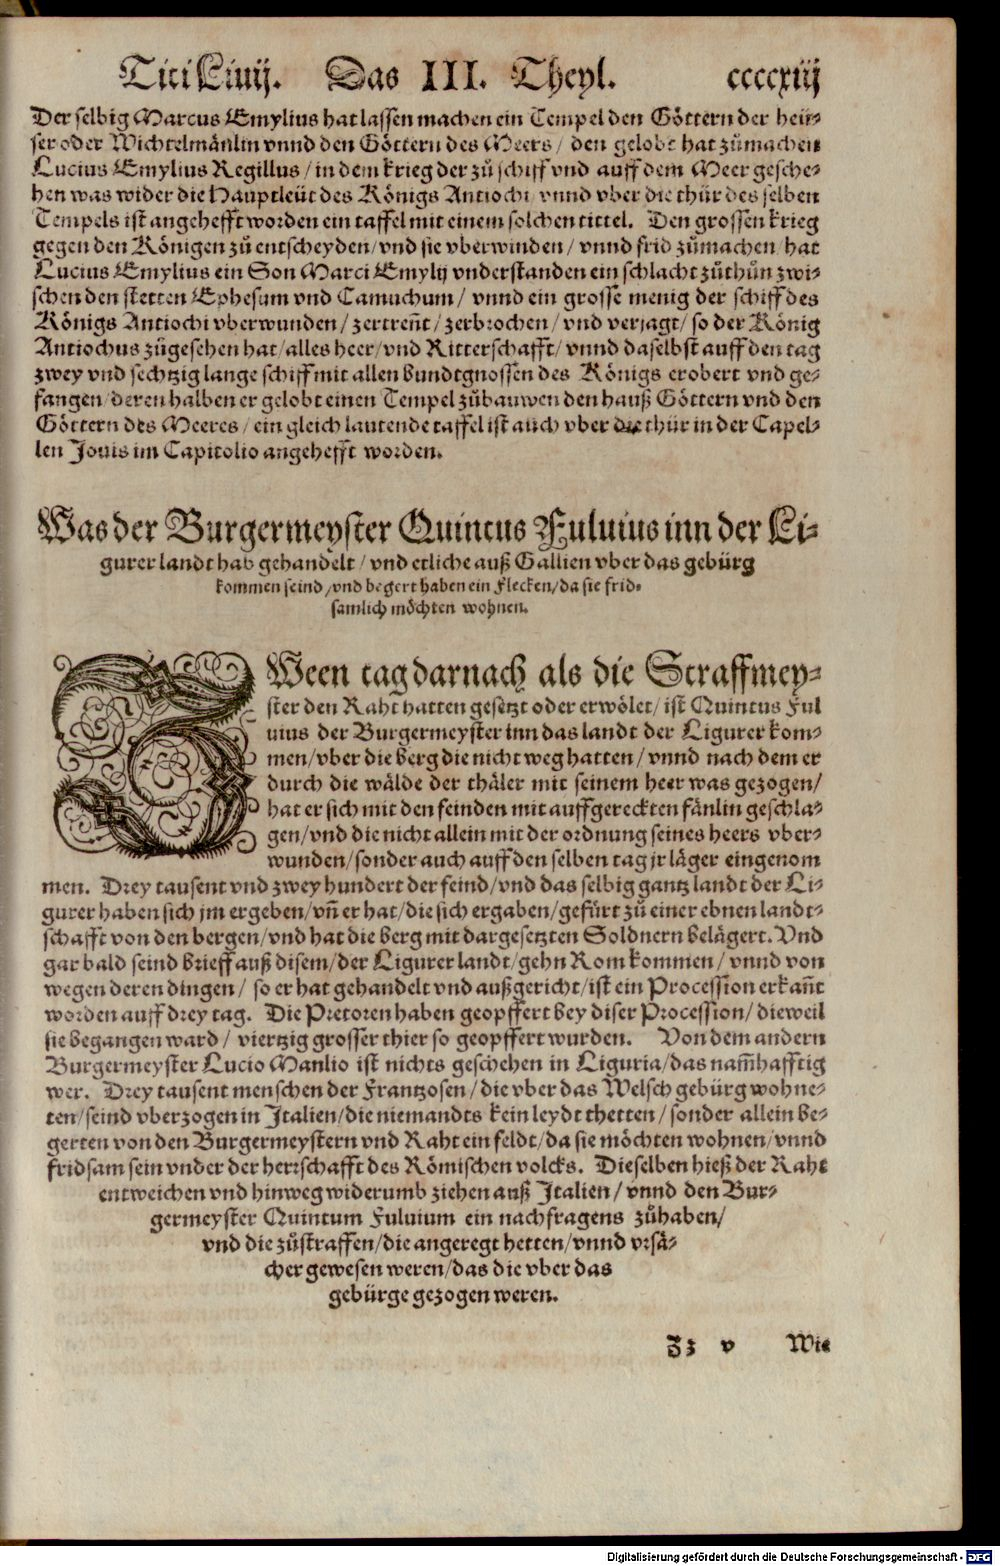 Titi Liuij. Das III. Theyl. ccccxiij
Der selbig Marcus Emylius hat lassen machen ein Tempel den Göttern der heü-
ser oder Wichtelmänlin vnnd den Göttern des Meers / den gelobt hat zůmachen
Lucius Emylius Regillus / in dem krieg der zů schiff vnd auff dem Meer gesche-
hen was wider die Hauptleüt des Königs Antiochi / vnnd vber die thür des selben
Tempels ist angehefft worden ein taffel mit einem solchen tittel. Den grossen krieg
gegen den Königen zů entscheyden / vnd sie vberwinden / vnnd frid zůmachen / hat
Lucius Emylius ein Son Marci Emylij vnderstanden ein schlacht zůthůn zwi-
schen den stetten Ephesum vnd Camuchum / vnnd ein grosse menig der schiff des
Königs Antiochi vberwunden / zertreñt / zerbrochen / vnd verjagt / so der König
Antiochus zůgesehen hat / alles heer / vnd Ritterschafft / vnnd daselbst auff den tag
zwey vnd sechtzig lange schiff mit allen bundtgnossen des Königs erobert vnd ge-
fangen / deren halben er gelobt einen Tempel zůbauwen den hauß Göttern vnd den
Göttern des Meeres / ein gleich lautende taffel ist auch vber die thür in der Capel-
len Jouis im Capitolio angehefft worden.
Was der Burgermeyster Quintus Fuluius inn der Li-
gurer landt hab gehandelt / vnd etliche auß Gallien vber das gebürg
kommen seind / vnd begert haben ein Flecken / da sie frid-
samlich möchten wohnen.
ZWeen tag darnach als die Straffmey-
ster den Raht hatten gesetzt oder erwölet / ist Quintus Ful
uius der Burgermeyster inn das landt der Ligurer kom-
men / vber die berg die nicht weg hatten / vnnd nach dem er
durch die wälde der thäler mit seinem heer was gezogen /
hat er sich mit den feinden mit auffgereckten fänlin geschla-
gen / vnd die nicht allein mit der ordnung seines heers vber-
wunden / sonder auch auff den selben tag jr läger eingenom
men. Drey tausent vnd zwey hundert der feind / vnd das selbig gantz landt der Li-
gurer haben sich jm ergeben / vñ er hat / die sich ergaben / gefürt zů einer ebnen landt-
schafft von den bergen / vnd hat die berg mit dargesetzten Soldnern belägert. Vnd
gar bald seind brieff auß disem / der Ligurer landt / gehn Rom kommen / vnnd von
wegen deren dingen / so er hat gehandelt vnd außgericht / ist ein Procession erkañt
worden auff drey tag. Die Pretoren haben geopffert bey diser Procession / dieweil
sie begangen ward / viertzig grosser thier so geopffert wurden. Von dem andern
Burgermeyster Lucio Manlio ist nichts geschehen in Liguria / das nam̃hafftig
wer. Drey tausent menschen der Frantzosen / die vber das Welsch gebürg wohne-
ten / seind vberzogen in Italien / die niemandts kein leydt thetten / sonder allein be-
gerten von den Burgermeystern vnd Raht ein feldt / da sie möchten wohnen / vnnd
fridsam sein vnder der herrschafft des Römischen volcks. Dieselben hieß der Raht
entweichen vnd hinweg widerumb ziehen auß Italien / vnnd den Bur-
germeyster Quintum Fuluium ein nachfragens zůhaben /
vnd die zůstraffen / die angeregt hetten / vnnd vrsä-
cher gewesen weren / das die vber das
gebürge gezogen weren.
Zz v Wie
Digitalisierung gefördert durch die Deutsche Forschungsgemeinschaft - DFG